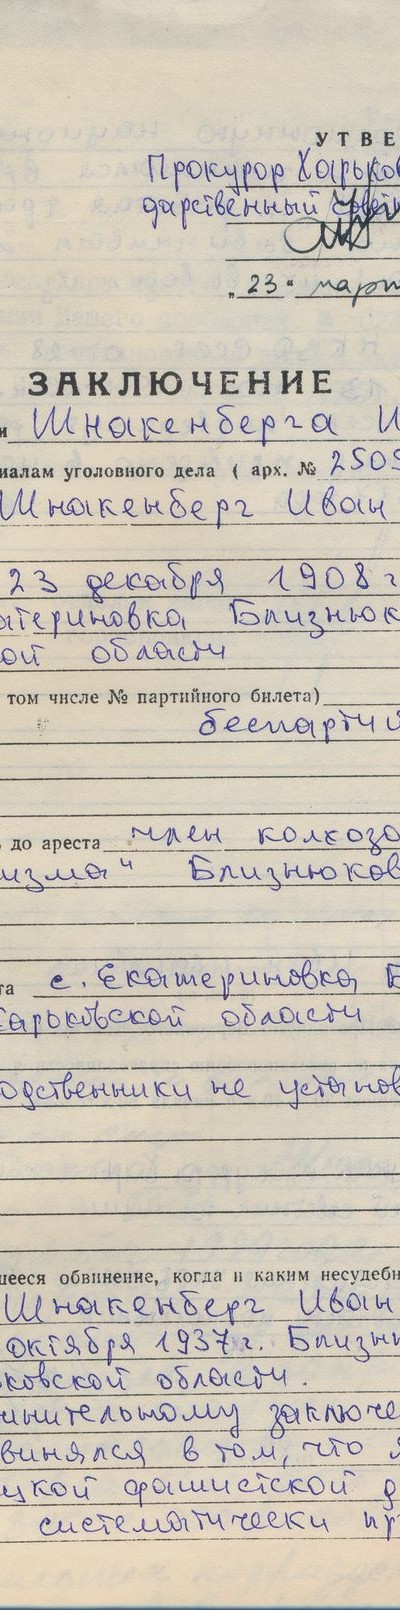 УТВЕ
Прокурор Харьков
дарственный совет
„23“ март
ЗАКЛЮЧЕНИЕ
и Шнакенберга И
иалам уголовного дела ( арх. № 2505
Шнакенберг Иван
23 декабря 1908 г
атериновка Близнюк
ой области
том числе № партийного билета)
беспартий
до ареста член колхоза
изма" Близнюков
та с. Екатериновка Б
Харьковской области
одственники не установ
щееся обвинение, когда и каким несудебн
Шнакенберг Иван
октября 1937 г. Близн
ковской области.
инительному заключе
винялся в том, что я
цкой фашистской д
систематически пр